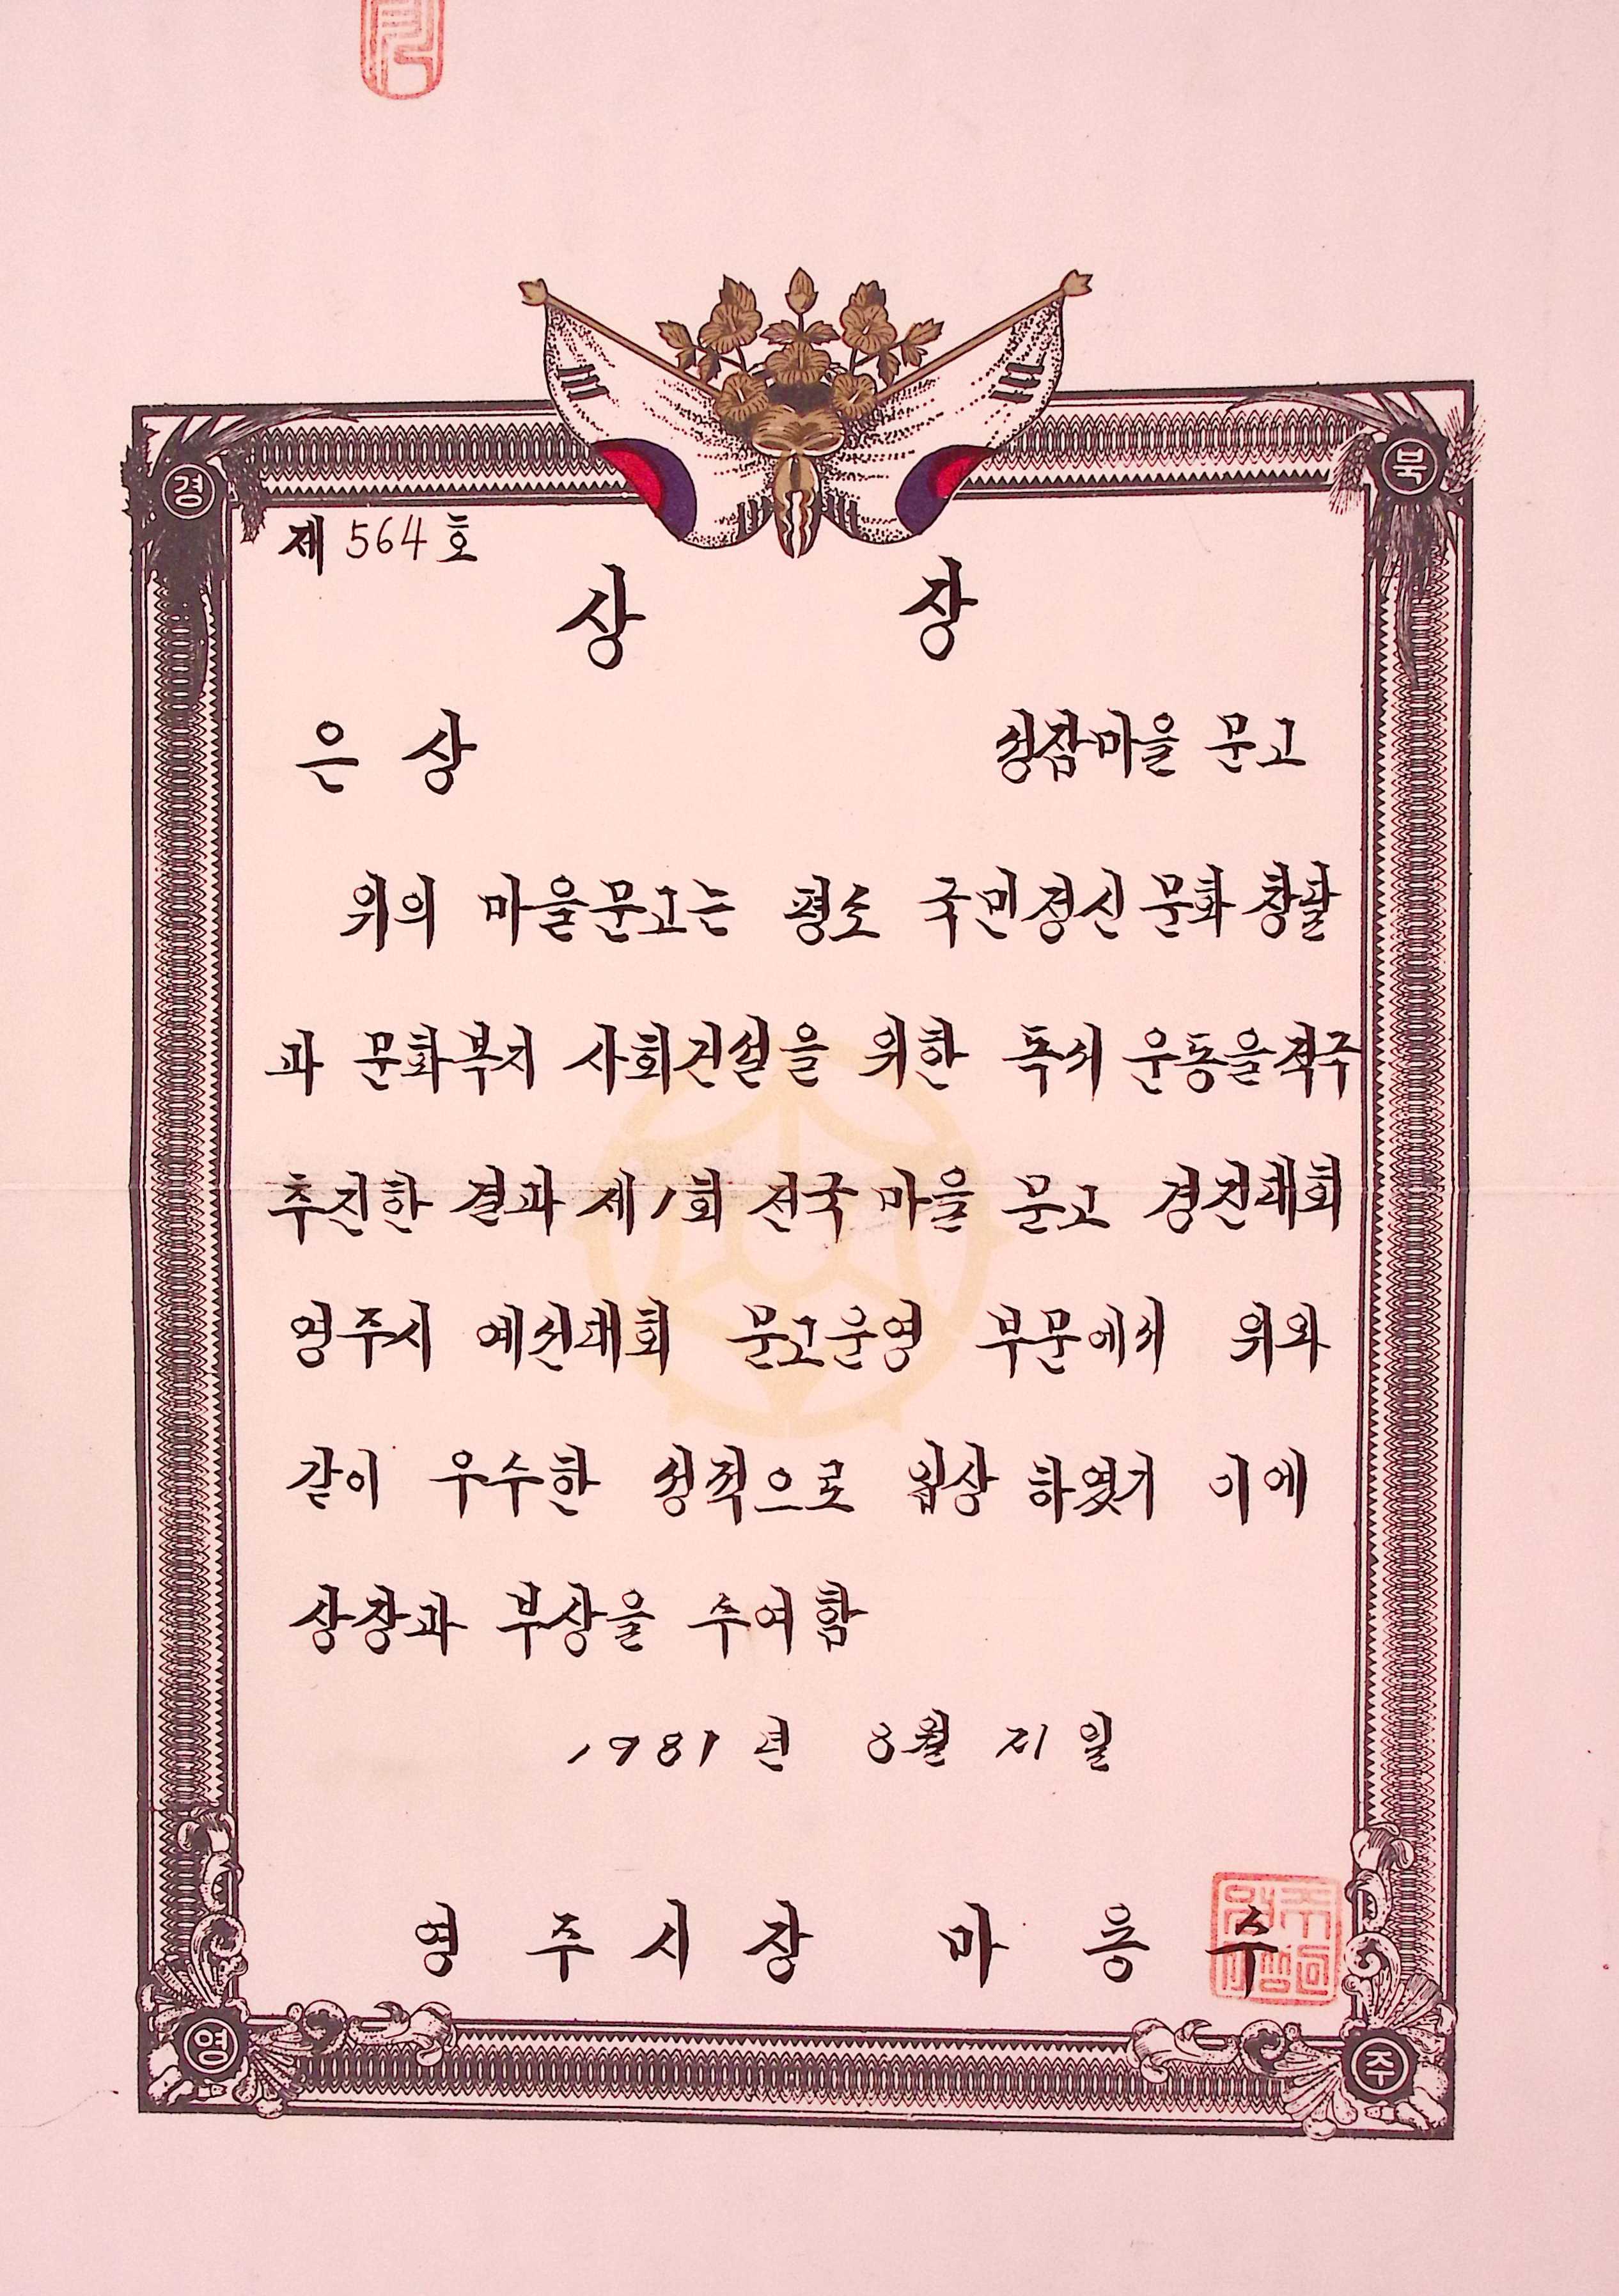 경 북
제 564 호
상 장
은 상 성잠마을 문고
위의 마을문고는 평소 국민정신 문화 창달
과 문화복지 사회건설을 위한 독서 운동을 적극
추진한 결과 제1회 전국 마을 문고 경진대회
영주시 예선대회 문고운영 부문에서 위와
같이 우수한 성적으로 입상 하였기 이에
상장과 부상을 수여함
1981 년 8월 21 일
영 주 시 장 마 응 수
영 주